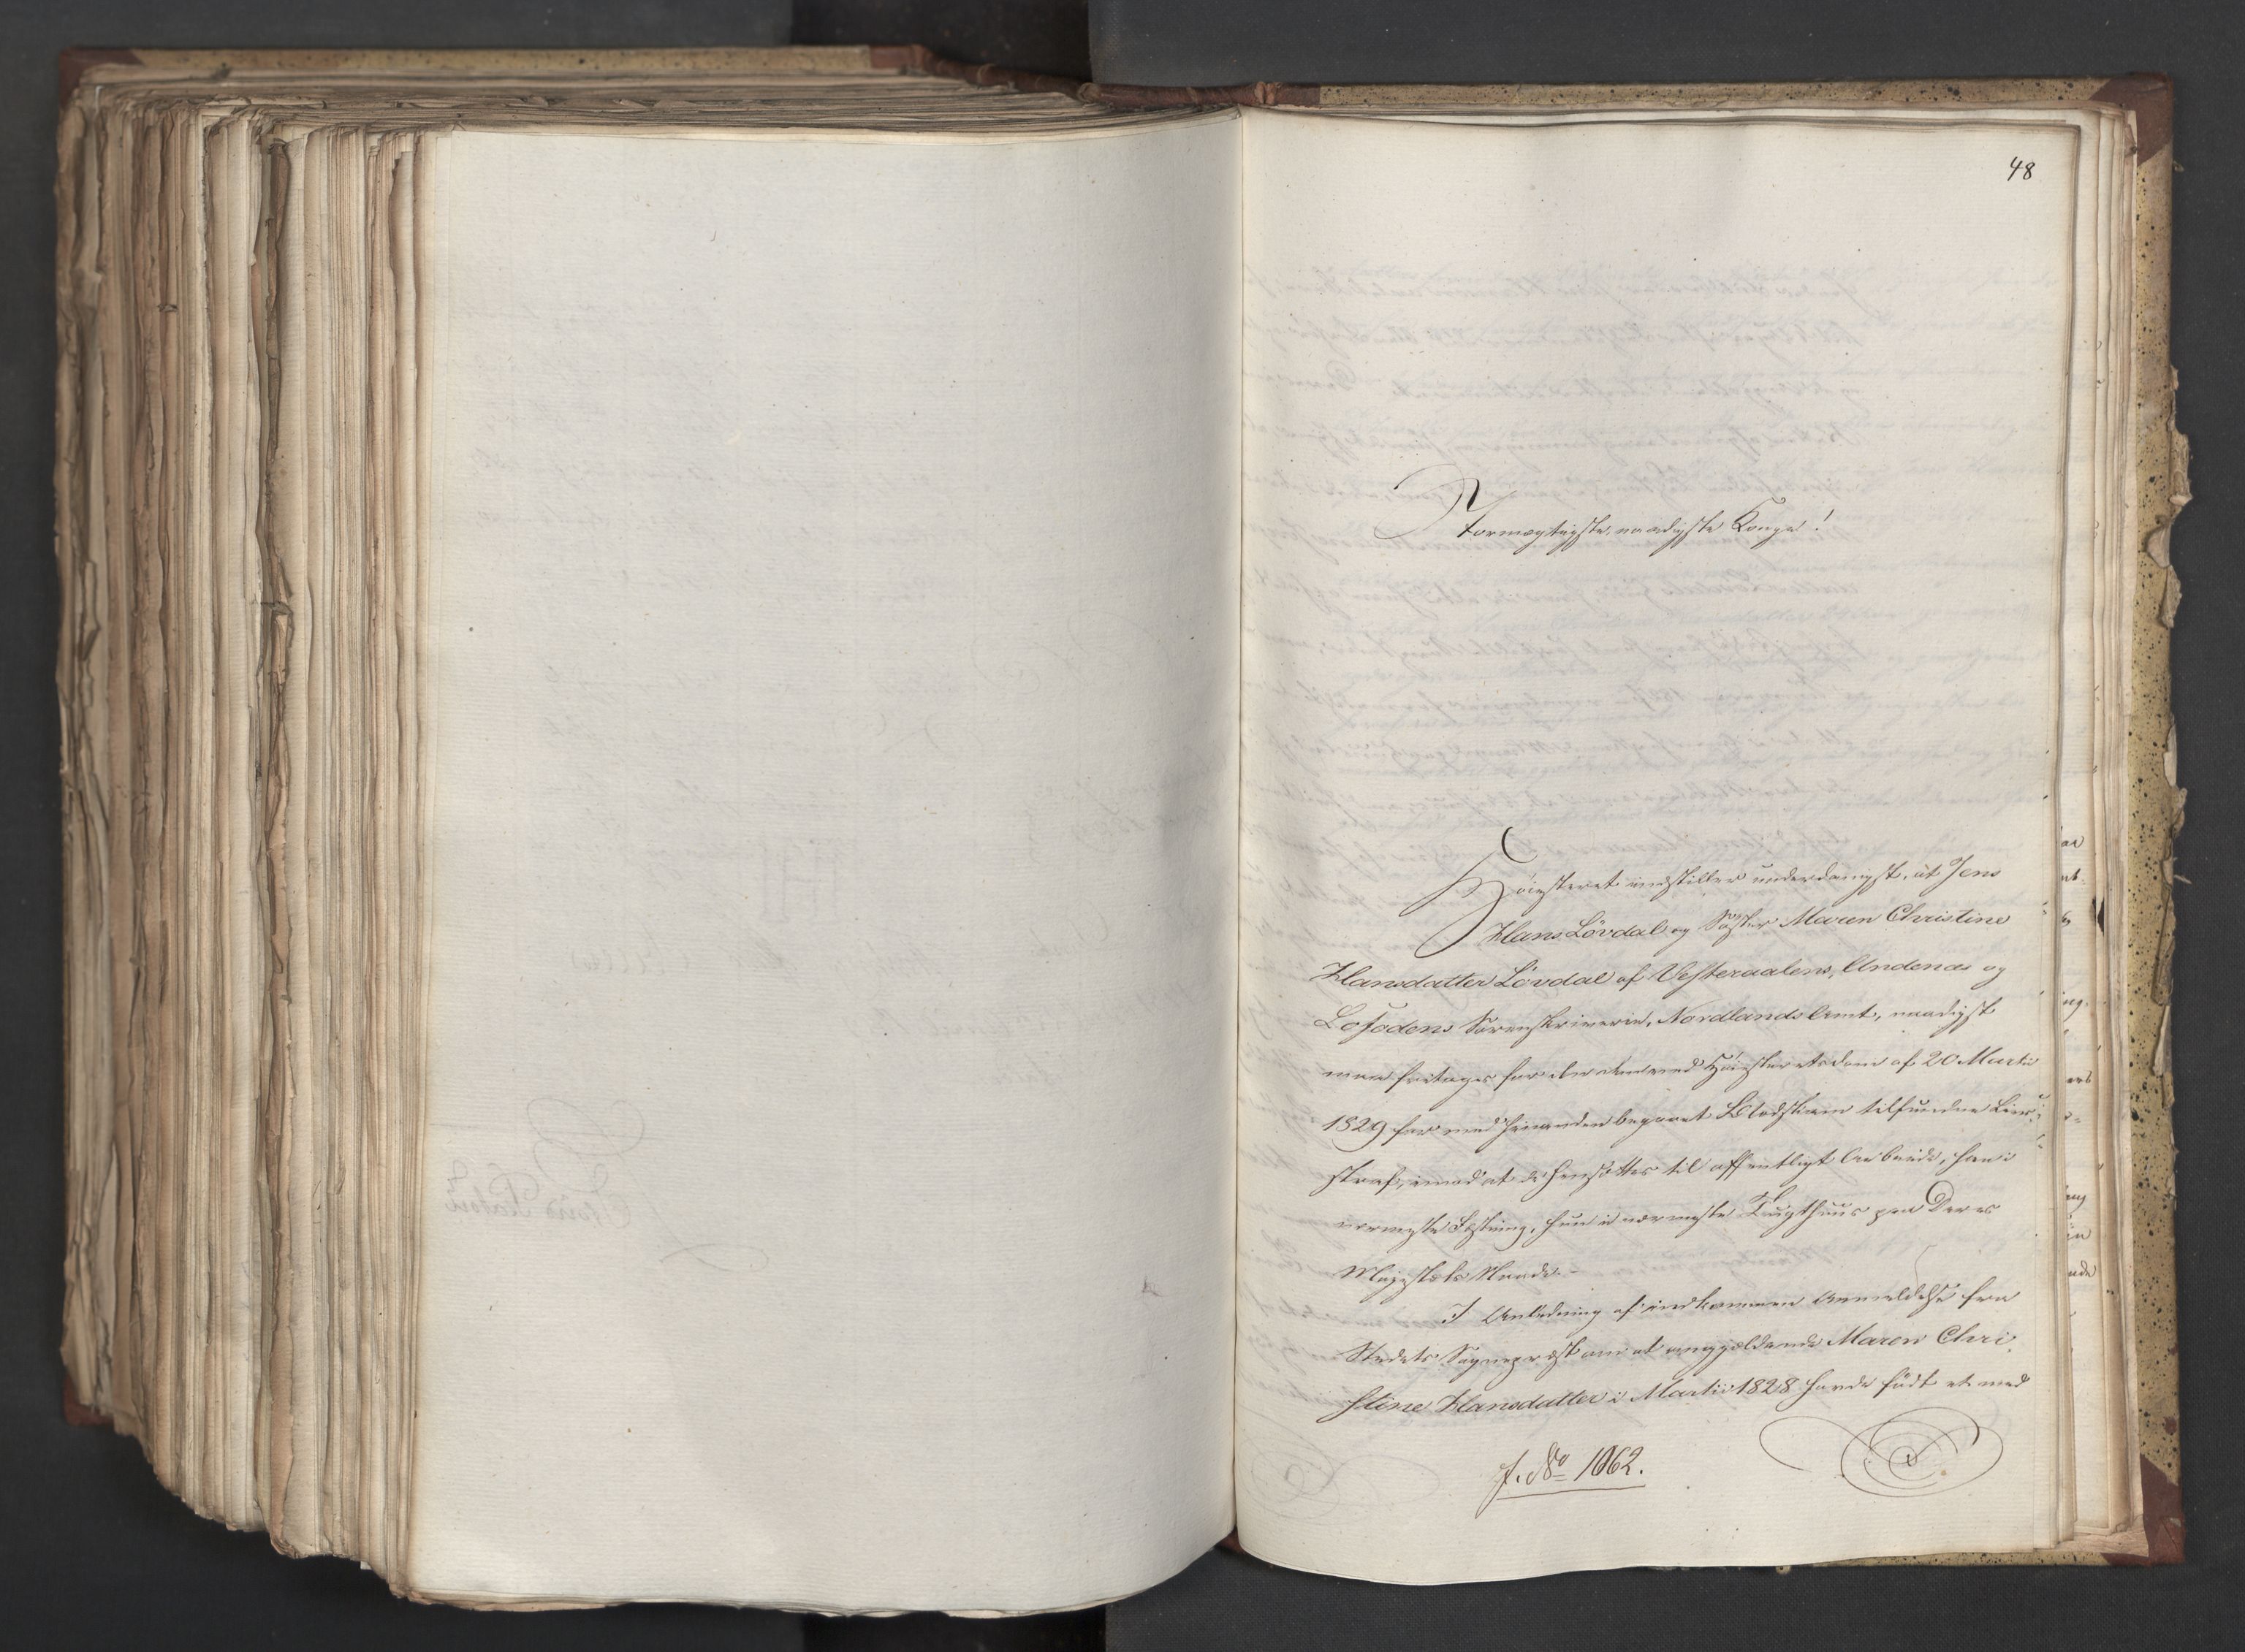 48
Stormægtigste, naadigste Konge!
Höiesteret indstiller underdanigst, at Jens
Hans Lövdal og Söster Maren Christine
Hansdatter Lövdal af Vesteraalens, Andenæs og
Lofodens Sorenskriverie, Nordlands Amt, naadigst
maa fritages for den dem ved Höiesteretsdom af 20 Martii
1829 for med hinanden begaaet Blodskam tilfundne Livs-
straf, imod at de hensættes til offentligt Arbeide, han i
nærmeste Fæstning, hun i nærmeste Tugthuus paa Deres
Majestæts Naade. -
I Anledning af indkommen Anmeldelse fra
Stedets Sognepræst om at angjældende Maren Chri-
stine Hansdatter i Martii 1828 havde födt et med
J. No 1062.